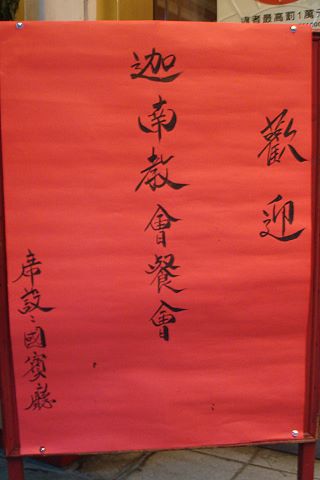 違者最高罰1萬元
歡迎
迦南教會餐會
席設：國賓廳